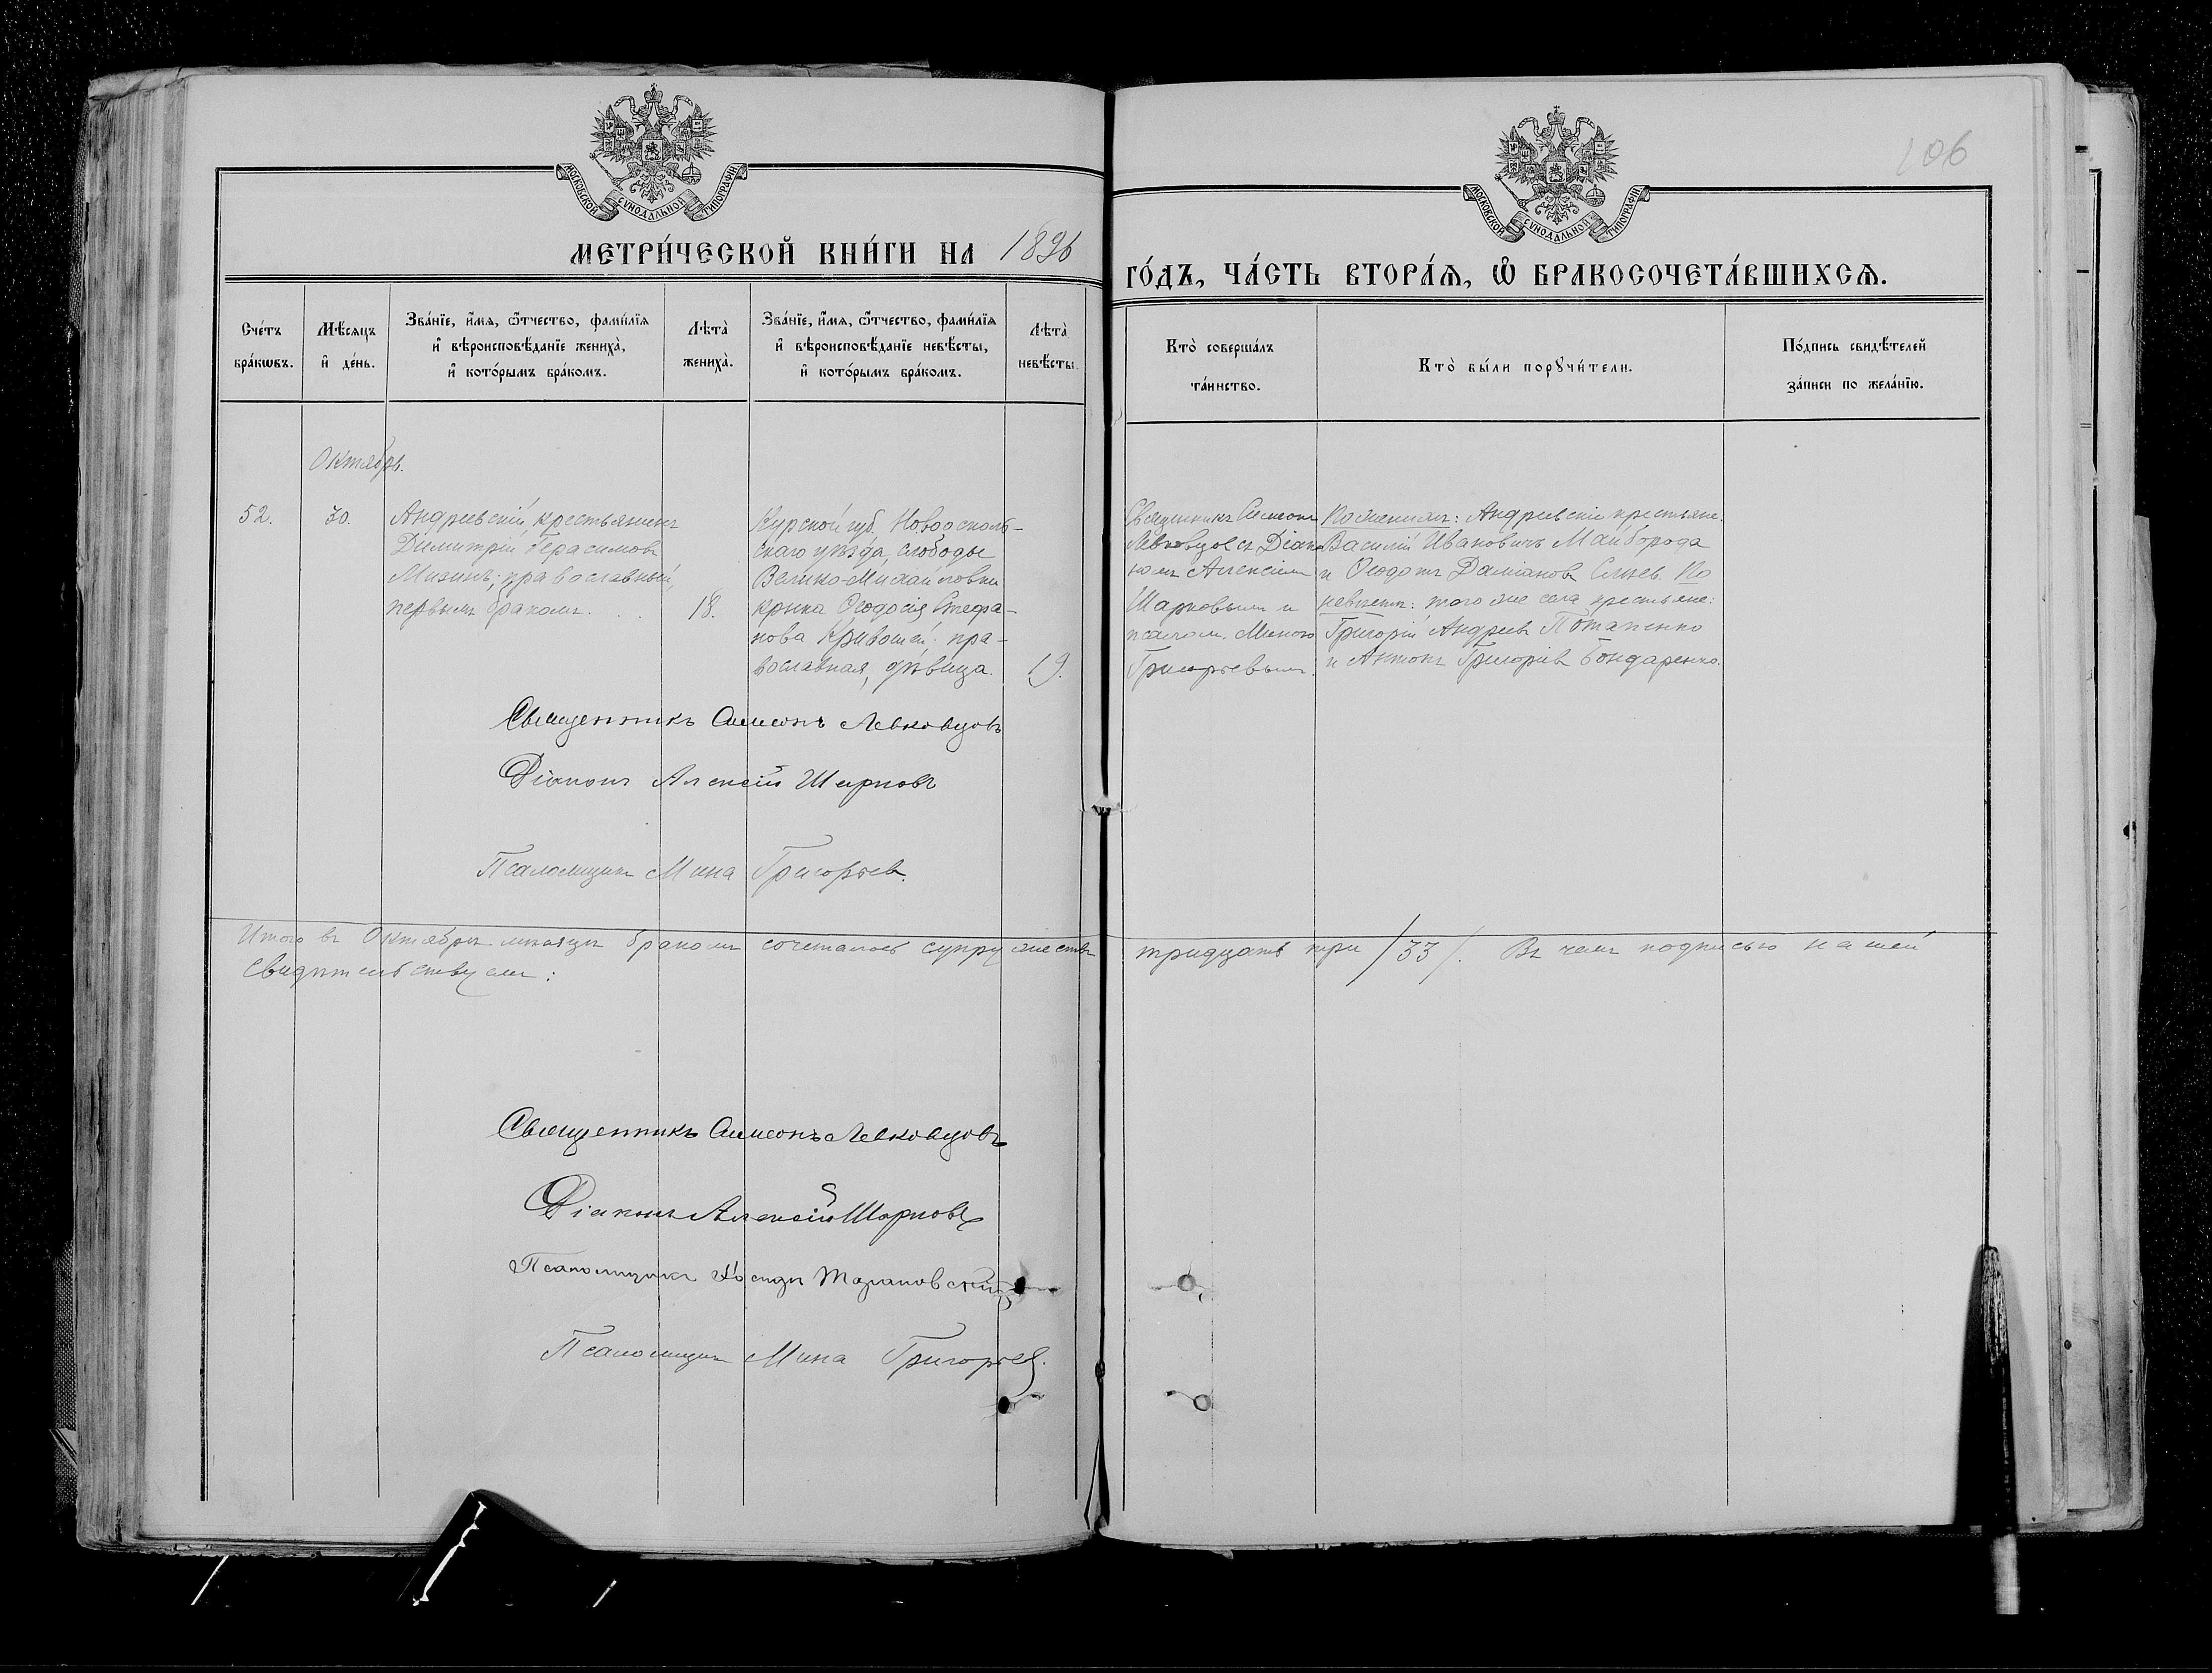 106
МОСКОВСКОЙ СѴНОДАЛЬНОЙ ТИПОГРАФІИ
МОСКОВСКОЙ СѴНОДАЛЬНОЙ ТИПОГРАФІИ
МЕТРИ́ЧЕСКОЙ КНИ́ГИ НА 1896
ГО́ДЪ, ЧА́СТЬ ВТОРА́Ѧ, Ѽ БРАКОСОЧЕТА́ВШИХСѦ.
Сче́тъ бра́кѡвъ.
Мѣ́сяцъ и҆ де́нь.
Зва́нїе, и҆́мѧ, ѻ҆́тчество, фами́лїѧ
и҆ вѣроисповѣ́данїе жениха̀,
и҆ кото́рымъ бра́комъ.
Лѣта̀ жениха̀.
Зва́нїе, и҆́мѧ, ѻ҆́тчество, фами́лїѧ
и҆ вѣроисповѣ́данїе невѣ́сты,
и҆ кото́рымъ бра́комъ.
Лѣта̀ невѣ́сты.
Кто̀ соверша́лъ
та́инство.
Кто̀ бы́ли порꙋчи́тели.
По́дпись свидѣ́телей
за́писи по жела́нїю.
Октябрь.
52.
30.
Андреевскій крестьянинъ
Димитрій Герасимовъ
Мизинъ; православный,
первымъ бракомъ.
18.
Курской губ. Новоосколь-
скаго уѣзда, слободы
Велико-Михайловки
крнка Ѳеодосія Стефа-
нова Кривошей; пра-
вославная, дѣвица.
19.
Священникъ Симеонъ
Левковцовъ съ Діако-
номъ Алексіемъ
Шарковымъ и
псалом. Миною
Григорьевымъ.
По женихѣ: Андреевскіе крестьяне:
Василій Ивановичъ Майборода
и Ѳеодотъ Даміановъ По
невѣстѣ: того же села крестьяне:
Григорій Андреевъ Потапенко
и Антонъ Григоріевъ Бондаренко.
Священникъ Симеонъ Левковцовъ
Діаконъ Алексій Шарковъ
Псаломщикъ Мина Григорьевъ.
Итого въ Октябрѣ мѣсяцѣ бракомъ сочеталось супружествъ тридцать три /33/. Въ чемъ подписью нашей
свидѣтельствуемъ:
Священникъ Симеонъ Левковцовъ
Діаконъ Алексій Шарковъ
Псаломщикъ
Псаломщикъ Мина Григорьевъ.